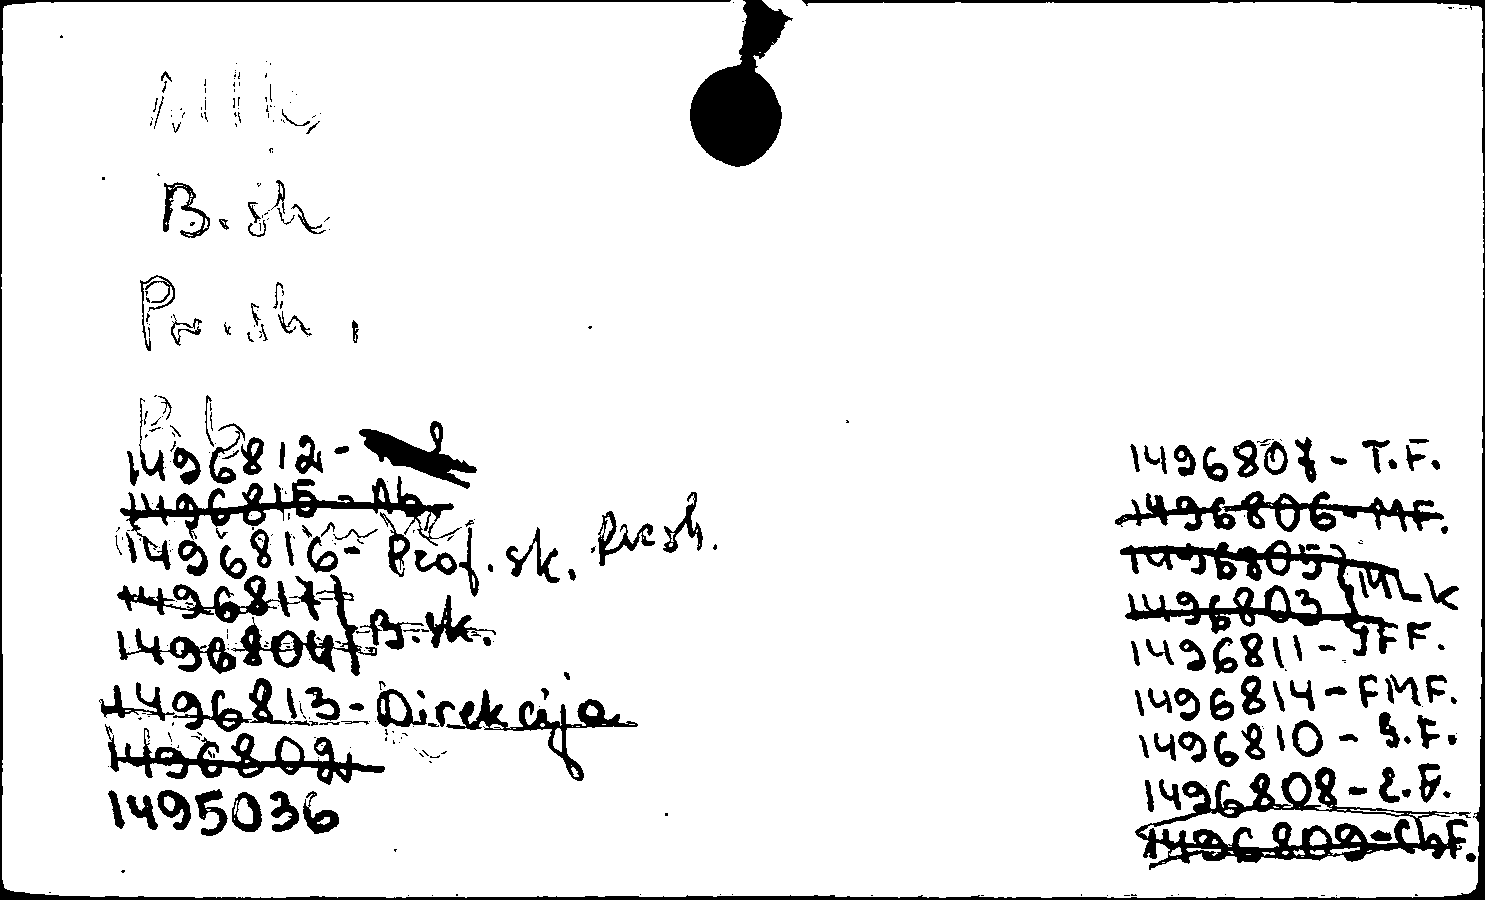 B.sh
Pr.sh.
1496812 -
1496815 - Ab
1496816 - Prof. sk. Pr.sh.
1496817
1496804 } B. sk.
1496813 - Direkcija
1496802
1495036
1496807 - T.F.
1496806 - MF.
1496805 } MLK
1496803
1496811 - JFF.
1496814 - FMF.
1496810 - G.F.
1496808 - E.F.
1496809 - ChF.